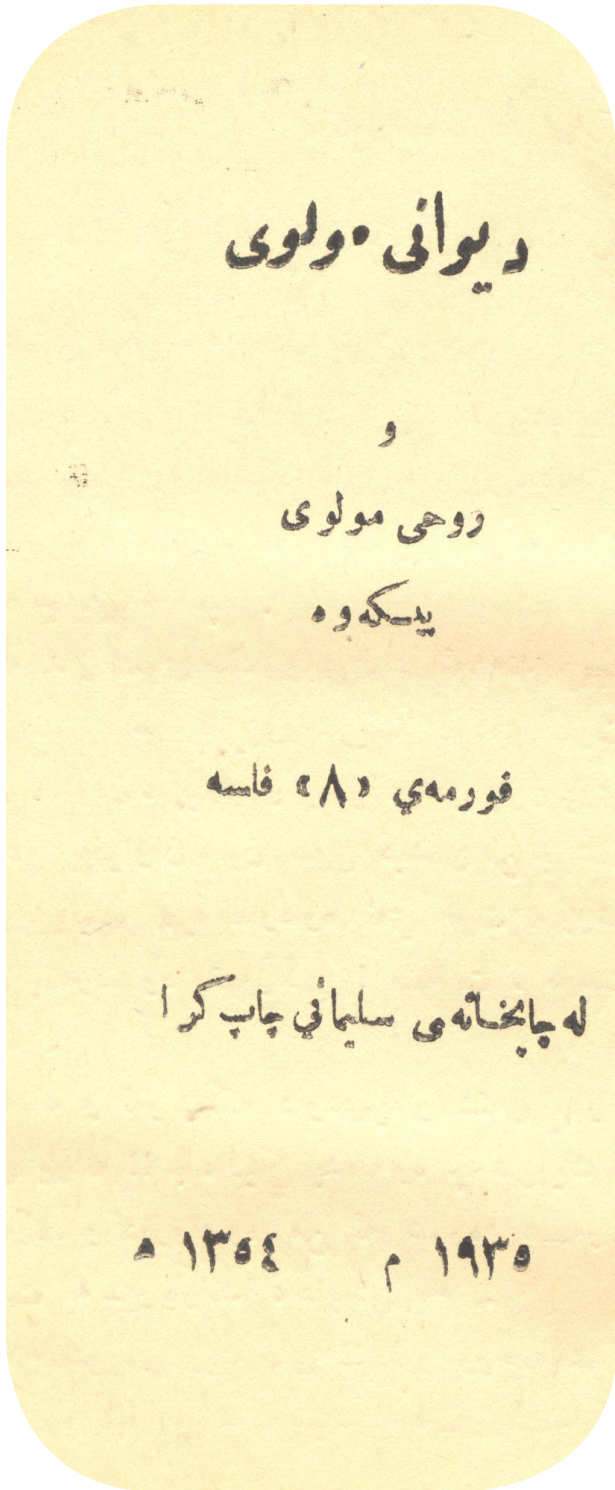 دیوانی مولوی
و
روحی مولوی
پیسکەوە
فورمەي «٨» فلسە
لە چاپخانەی سلیماني چاپ کرا
١٩٣٥ م ١٣٥٤ ه